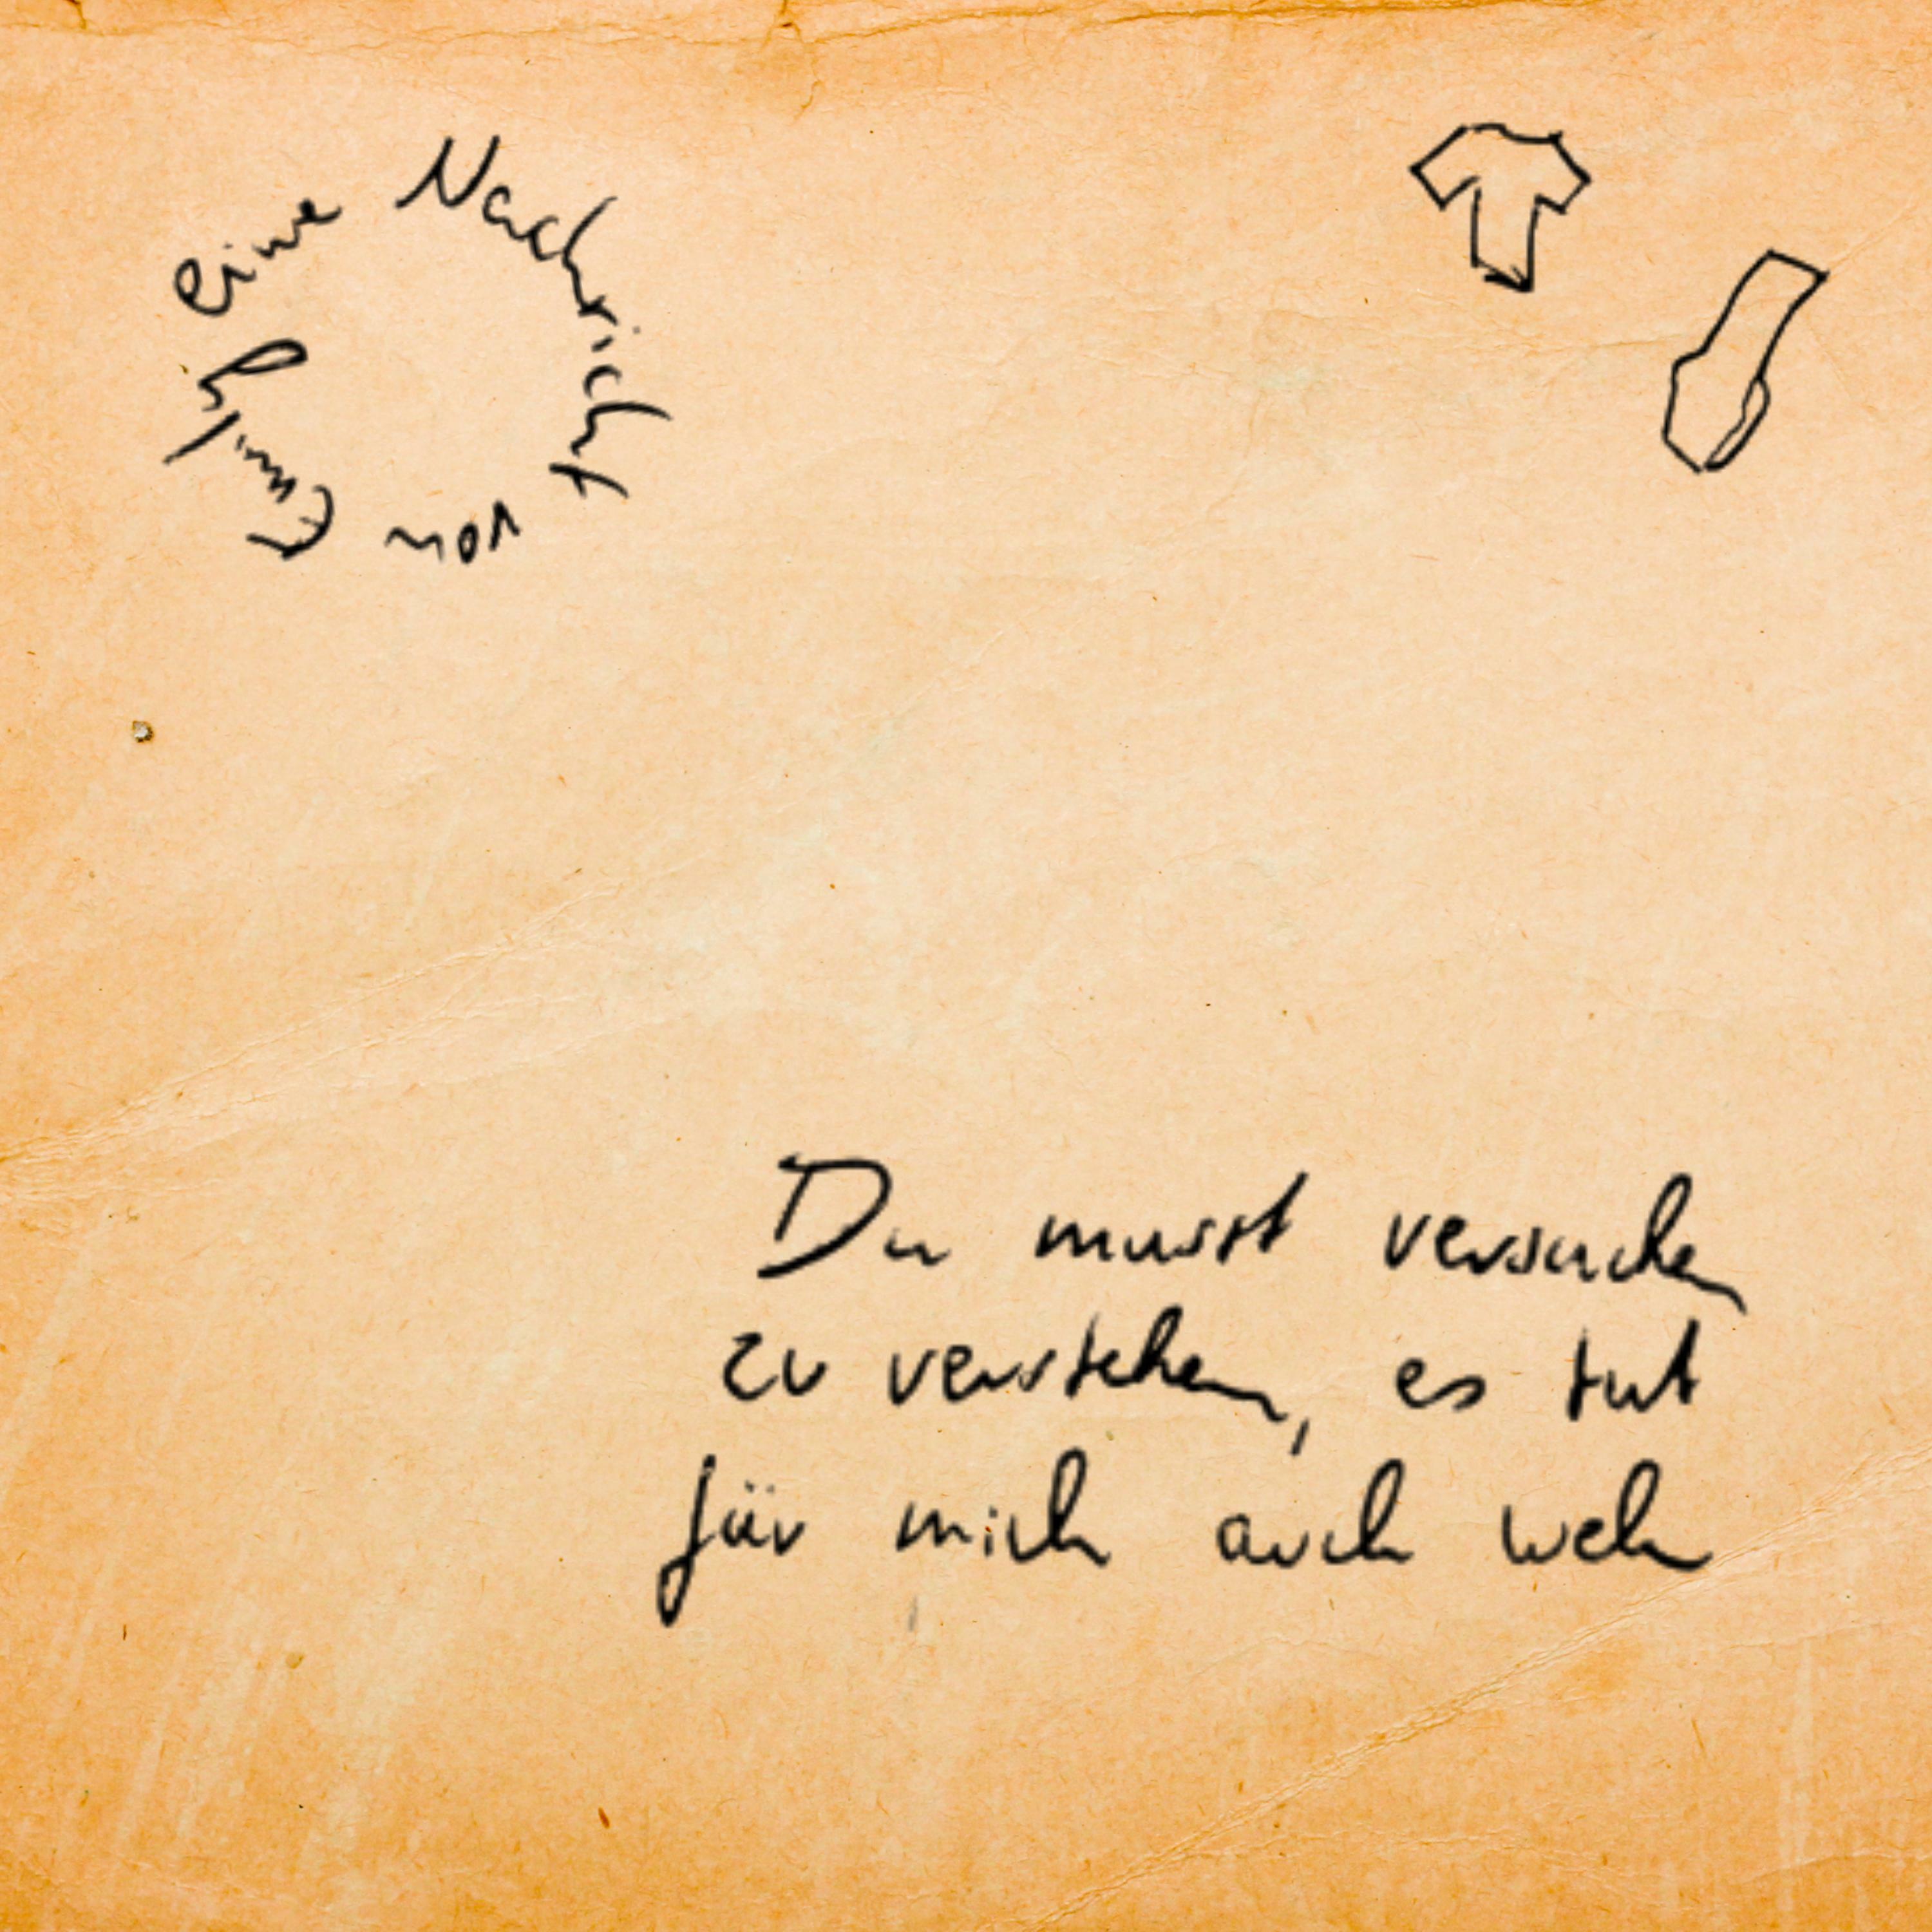 eine Nachricht von Emily
Du musst versuchen
zu verstehen, es tut
für mich auch weh